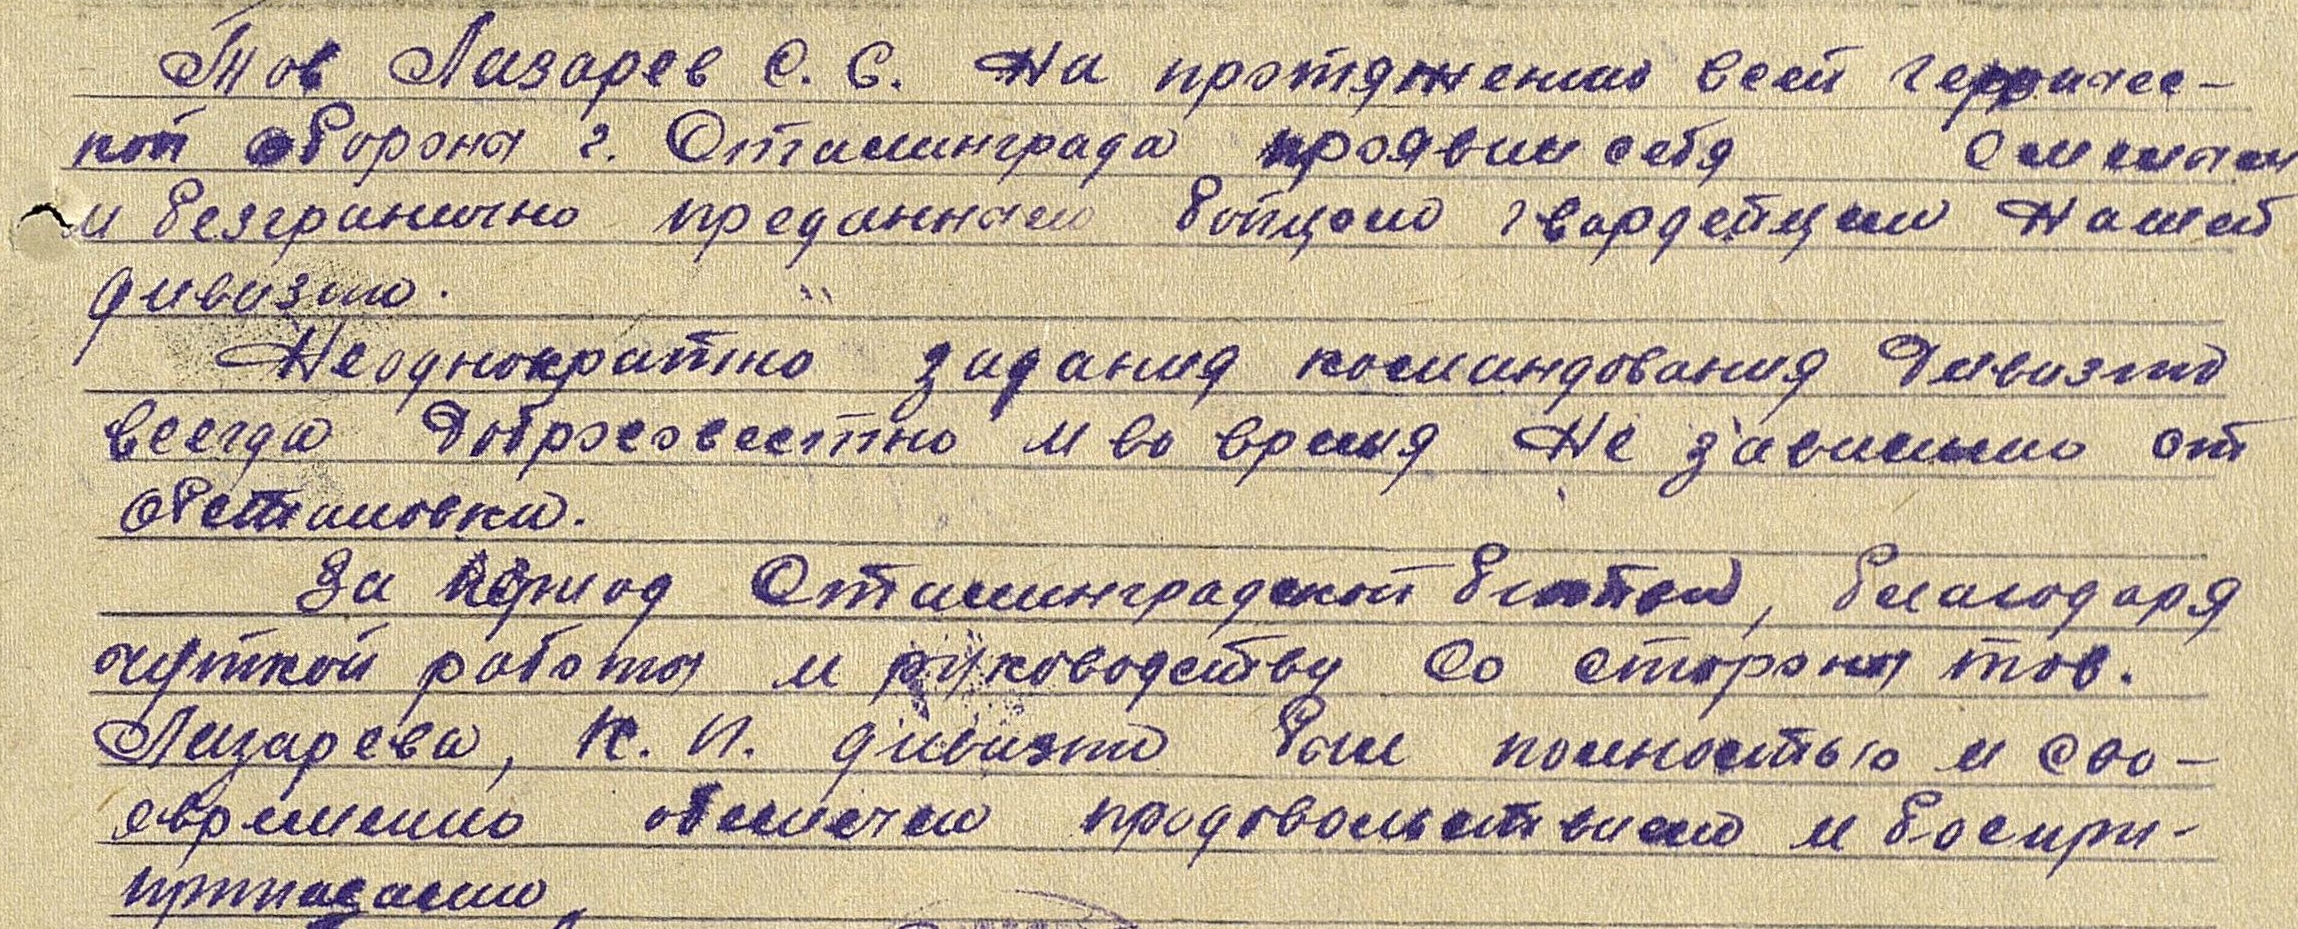 Тов Лазарев С. С. На протяжении всей героичес-
кой обороны г. Сталинграда проявил себя смелым
и безгранично преданным бойцом гвардейцем нашей
дивизии.
Неоднократно задания командования дивизии
всегда добросовестно и во время не зависимо от
обстановки.
За период Сталинградской битвы, благодаря
чуткой работы и руководству со стороны тов.
Лазарева, К. П. дивизии был полностью и сво-
евременно обеспечен продовольствием и боепри-
припасами,